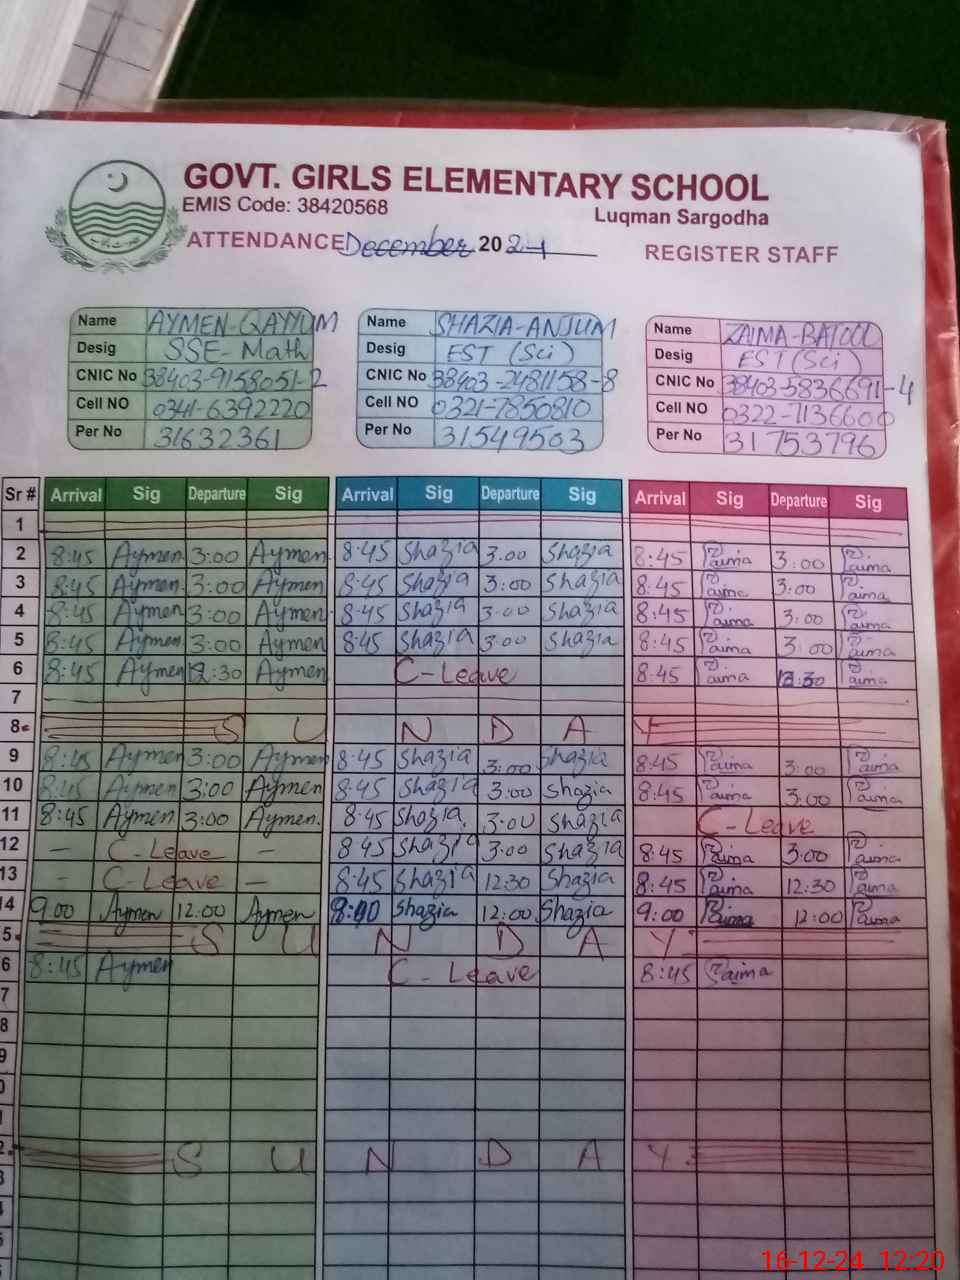 GOVT. GIRLS ELEMENTARY SCHOOL
EMIS Code: 38420568
Luqman Sargodha
ATTENDANCE December 2024 REGISTER STAFF
Name AYMEN-QAYYUM Name SHAZIA-ANJUM Name ZAIMA-BATOOL
Desig SSE-Math Desig EST (Sci) Desig EST (Sci)
CNIC No 38403-9158051-2 CNIC No 38403-2481158-8 CNIC No 38403-5836691-4
Cell NO 0341-6392220 Cell NO 0321-7850810 Cell NO 0322-7136600
Per No 31632361 Per No 31549503 Per No 31753796
Sr # Arrival Sig Departure Sig Arrival Sig Departure Sig Arrival Sig Departure Sig
1
2 8:45 Aymen 3:00 Aymen 8:45 Shazia 3:00 Shazia 8:45 Zaima 3:00 Zaima
3 8:45 Aymen 3:00 Aymen 8:45 Shazia 3:00 Shazia 8:45 Zaima 3:00 Zaima
4 8:45 Aymen 3:00 Aymen 8:45 Shazia 3:00 Shazia 8:45 Zaima 3:00 Zaima
5 8:45 Aymen 3:00 Aymen 8:45 Shazia 3:00 Shazia 8:45 Zaima 3:00 Zaima
6 8:45 Aymen 12:30 Aymen C-Leave 8:45 Zaima 12:30 Zaima
7
8 S U N D A Y
9 8:45 Aymen 3:00 Aymen 8:45 Shazia 3:00 Shazia 8:45 Zaima 3:00 Zaima
10 8:45 Aymen 3:00 Aymen 8:45 Shazia 3:00 Shazia 8:45 Zaima 3:00 Zaima
11 8:45 Aymen 3:00 Aymen. 8:45 Shazia. 3:00 Shazia C-Leave
12 – C-Leave – 8:45 Shazia 3:00 Shazia 8:45 Zaima 3:00 Zaima
13 – C-Leave – 8:45 Shazia 12:30 Shazia 8:45 Zaima 12:30 Zaima
14 9:00 Aymen 12:00 Aymen Shazia 12:00 Shazia 9:00 Zaima 12:00 Zaima
5 S U N D A Y
6 8:45 Aymen C-Leave 8:45 Zaima
7
8
9
0
1
2 S U N D A Y
3
4
5
16-12-24 12:20